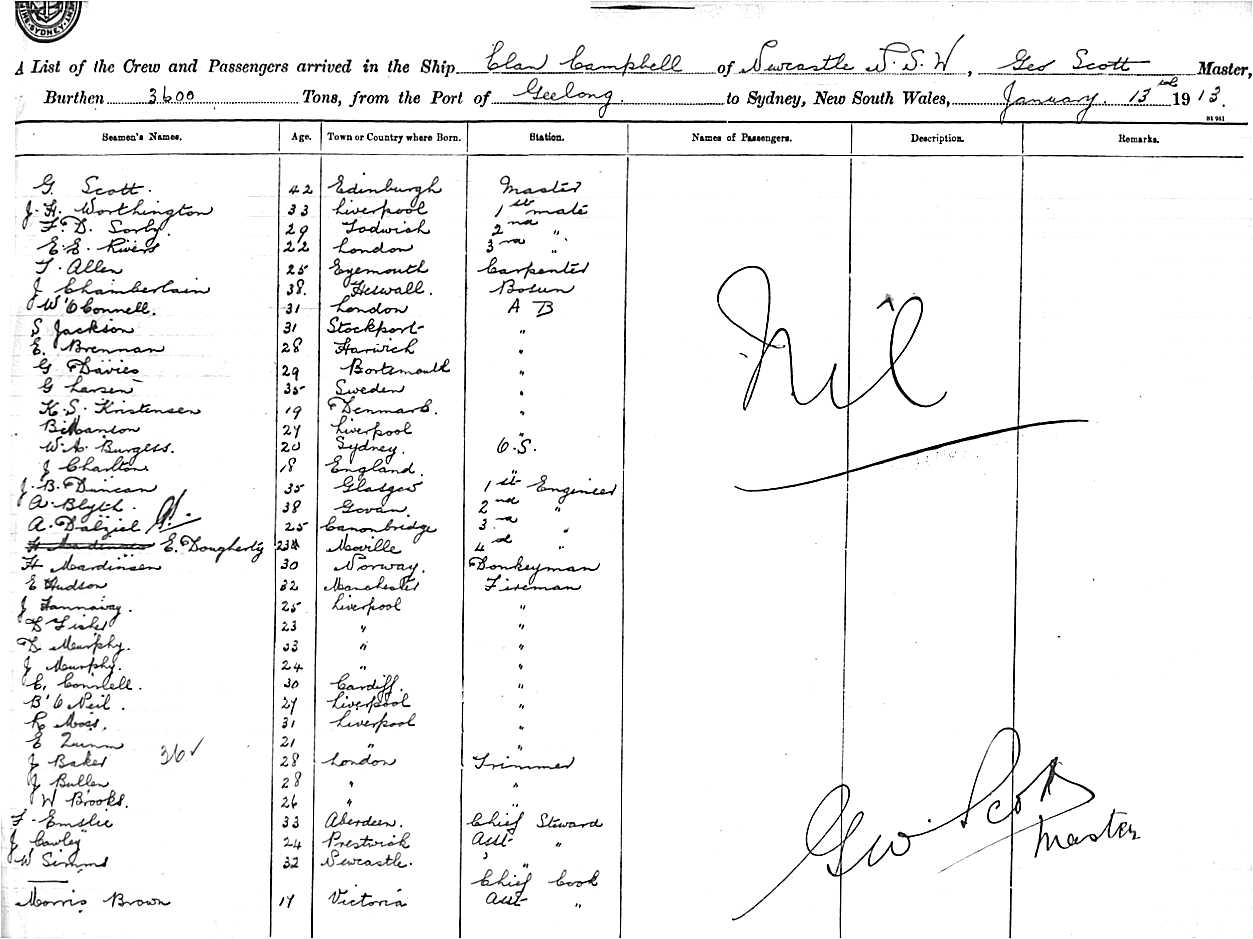 SYDNEY
A List of the Crew and Passengers arrived in the Ship Clan Campbell of Newcastle N.S.W, Geo Scott Master,
Burthen 3600 Tons, from the Port of Geelong. to Sydney, New South Wales, January. 13th 1913.
Seamen's Names. Age. Town or Country where Born. Station. Names of Passengers. Description. Remarks.
G. Scott. 42 Edinburgh Master
J. H. Worthington 33 Liverpool 1st mate
F. D. Sorby. 29 Todwick 2nd "
E. E. Rivers 22 London 3rd "
T. Allen 25 Eyemouth Carpenter
J Chamberlain 38. Heswall. Bosun
W O'Connell. 31 London A B
S Jackson 31 Stockport "
E. Brennan 28 Harwich "
G Davies 29 Portsmouth "
G Larsen 35 Sweden "
K. S. Kristensen 19 Denmark. "
27 Liverpool "
W. A. Burgess. 20 Sydney. O.S.
J Charlton 18 England. "
J. B. Duncan 35 Glasgow 1st Engineer
A. Blyth. 38 Govan. 2nd "
A. Dalziel 25 Canonbridge 3rd "
E. Dougherty 23 Moville 4th "
H Mardinsen 30 Norway. Donkeyman
E Hudson 32 Manchester Fireman
J Hannaway. 25 Liverpool "
D Fisher 23 " "
D. Murphy. 33 " "
J Murphy. 24 " "
C. Connell. 30 Cardiff. "
B O'Neil. 27 Liverpool "
R Moss. 31 Liverpool "
E Quinn 21 " "
36 ✓
J Baker 28 London Trimmer
J Bullen 28 " "
W Brooks. 26 " "
F. Emslie 33 Aberdeen. Chief Steward
J Cawley 24 Prestwich Asst "
W Simms 32 Newcastle. " "
Chief Cook
Morris Brown 17 Victoria Asst "
Nil
Geo. Scott
Master